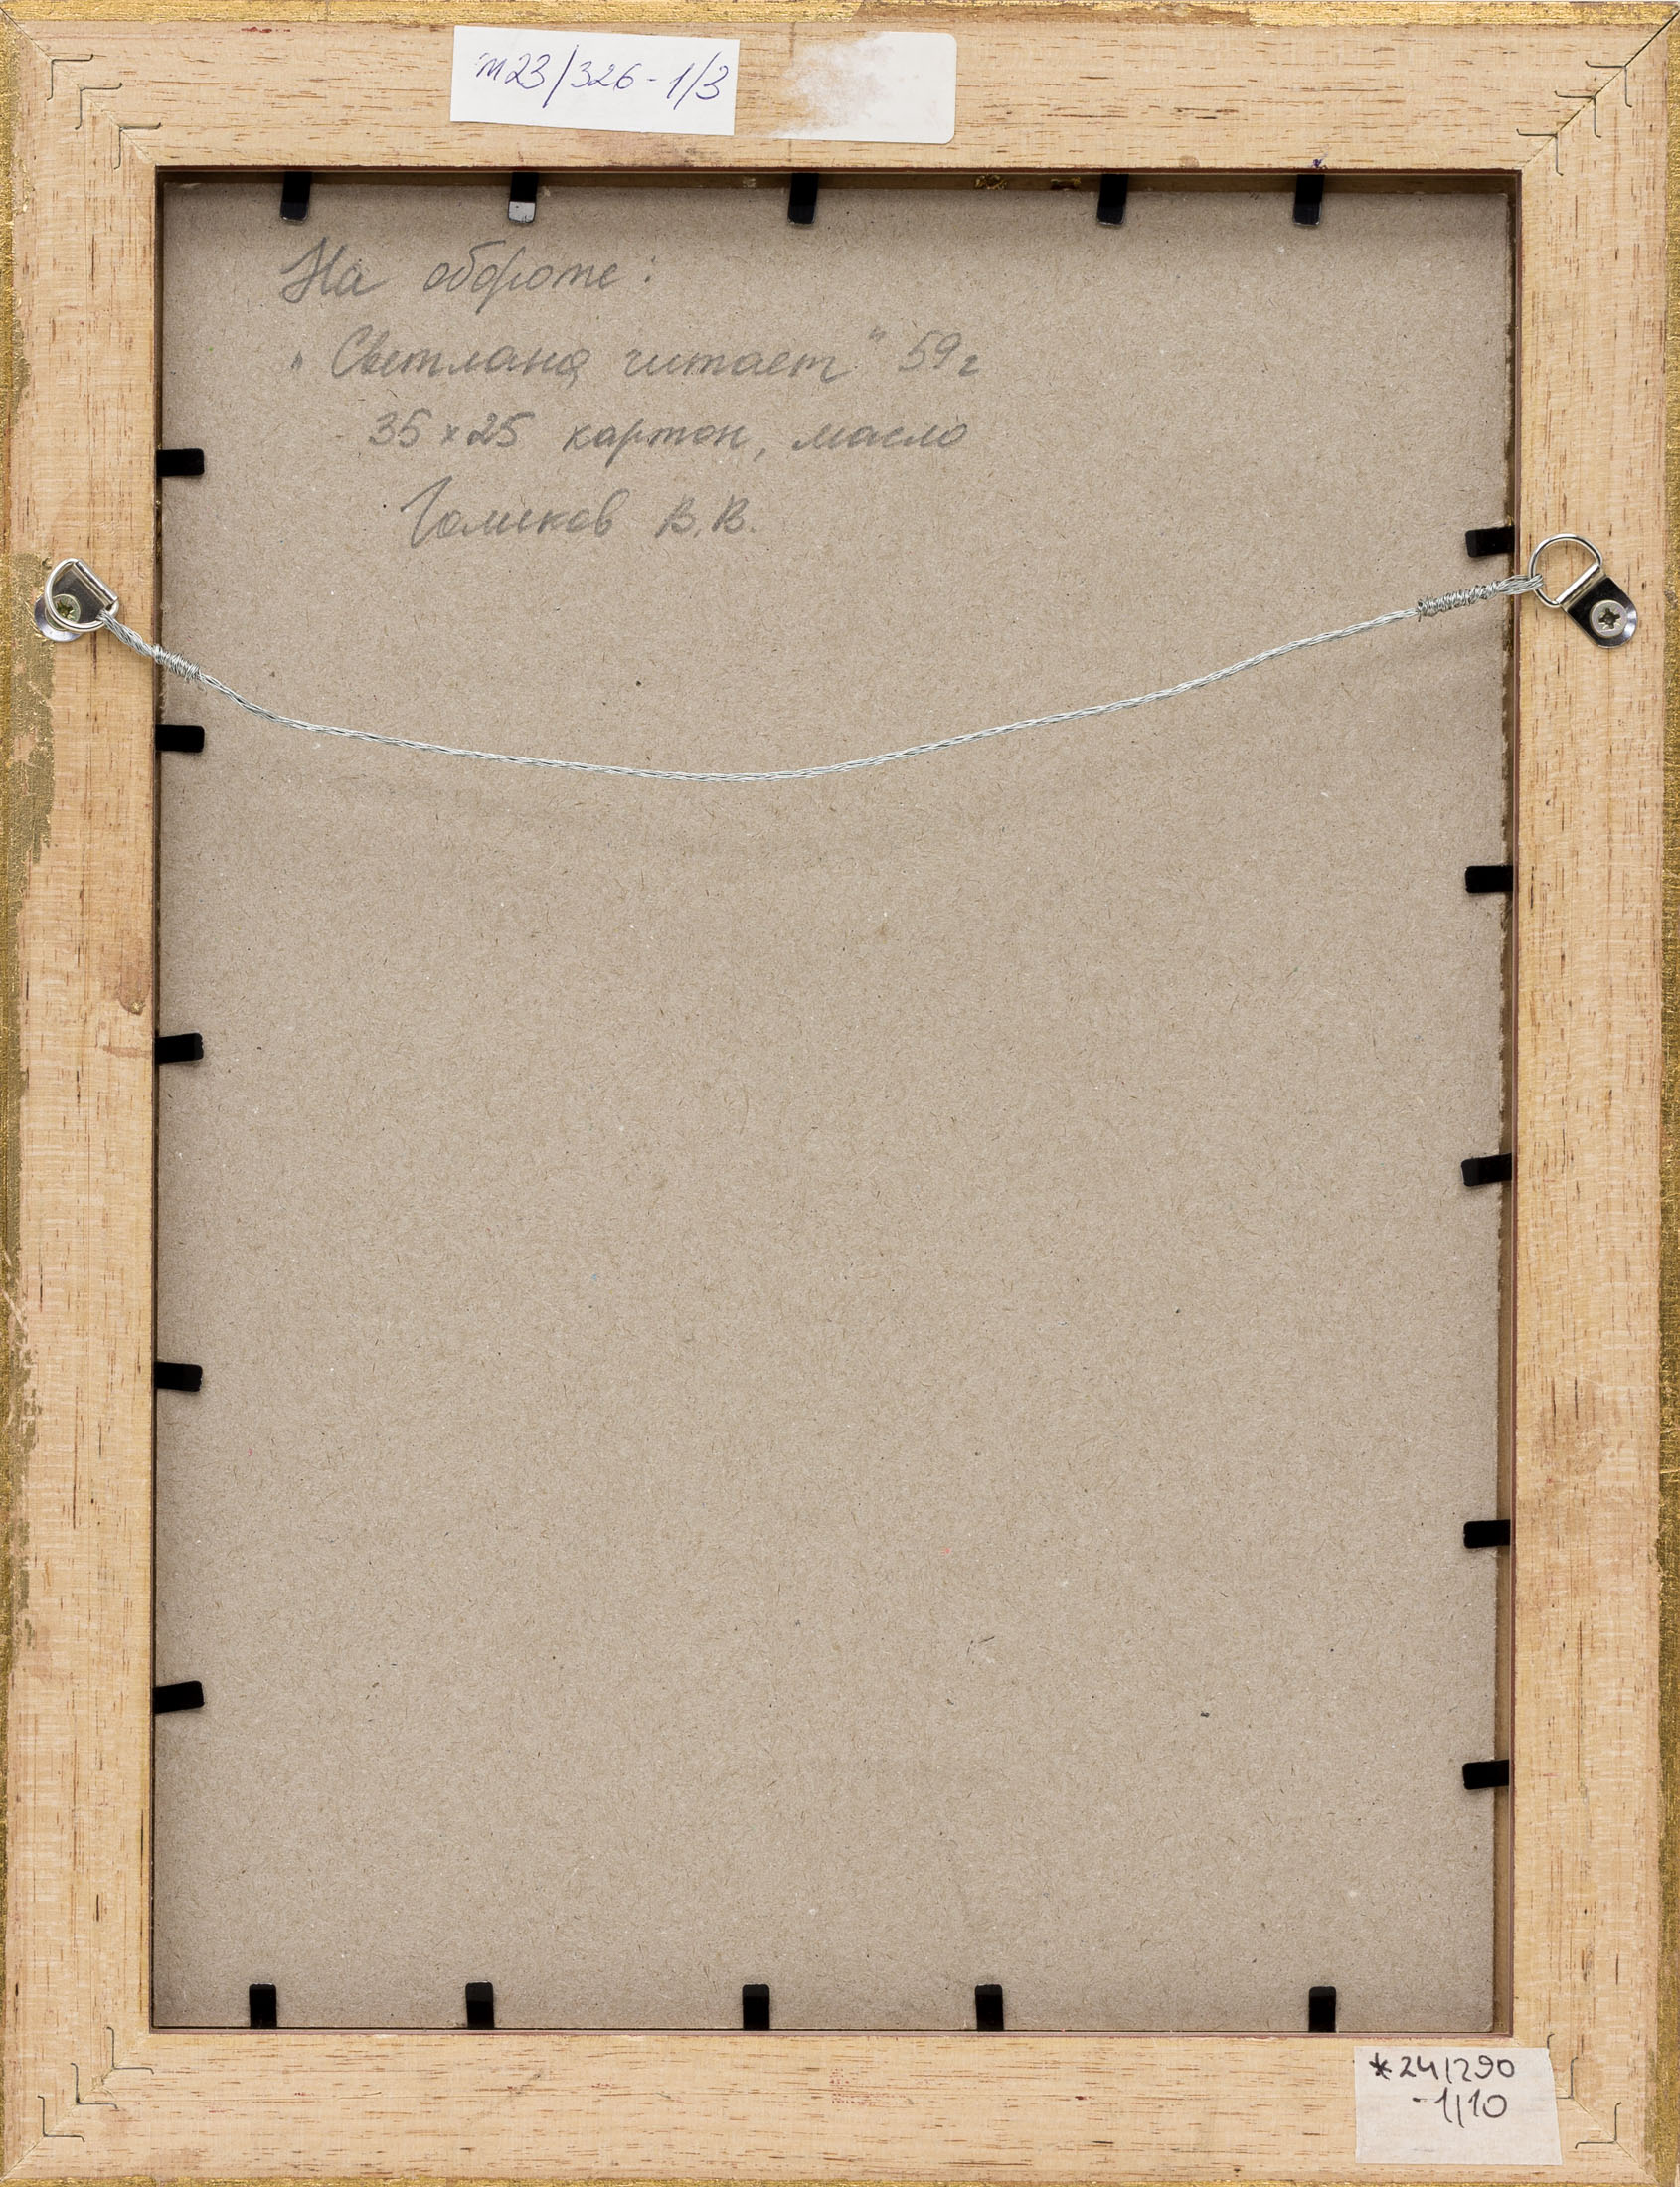 м23/326-1/3
На обороте:
„Светлана читает" 59г
35×25 картон, масло
Голиков В.В.
*24/290
-1/10